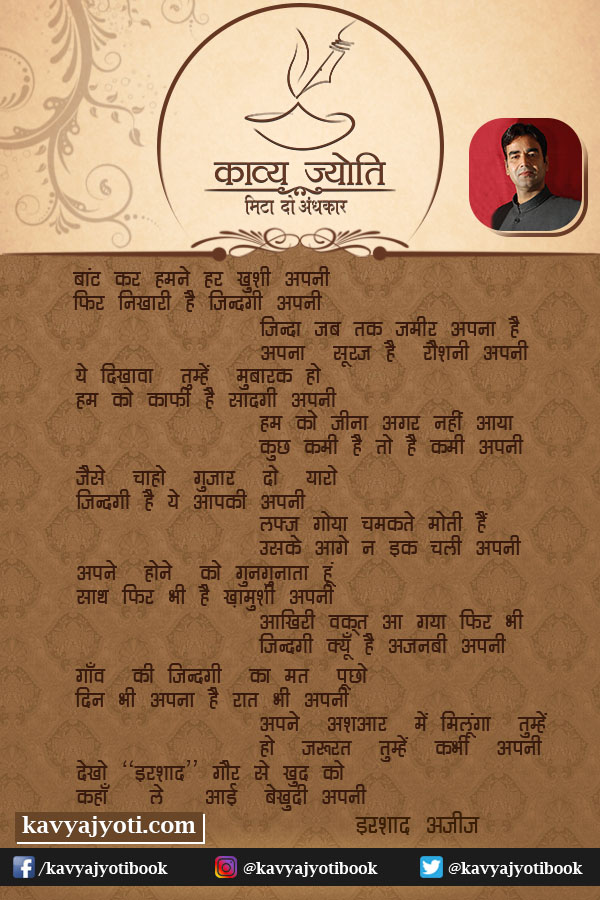 काव्य ज्योति
मिटा दो अंधकार
बांट कर हमने हर खुशी अपनी
फिर निखारी है जिन्दगी अपनी
जिन्दा जब तक जमीर अपना है
अपना सूरज है रौशनी अपनी
ये दिखावा तुम्हें मुबारक हो
हम को काफी है सादगी अपनी
हम को जीना अगर नहीं आया
कुछ कमी है तो है कमी अपनी
जैसे चाहो गुजार दो यारो
जिन्दगी है ये आपकी अपनी
लफ्ज गोया चमकते मोती हैं
उसके आगे न इक चली अपनी
अपने होने को गुनगुनाता हूं
साथ फिर भी है ख़ामुशी अपनी
आखिरी वक़्त आ गया फिर भी
जिन्दगी क्यूँ है अजनबी अपनी
गाँव की जिन्दगी का मत पूछो
दिन भी अपना है रात भी अपनी
अपने अशआर में मिलूंगा तुम्हें
हो जरूरत तुम्हें कभी अपनी
देखो ‘‘इरशाद’’ गौर से खुद को
कहाँ ले आई बेखुदी अपनी
इरशाद अजीज
kavyajyoti.com
/kavyajyotibook @kavyajyotibook @kavyajyotibook